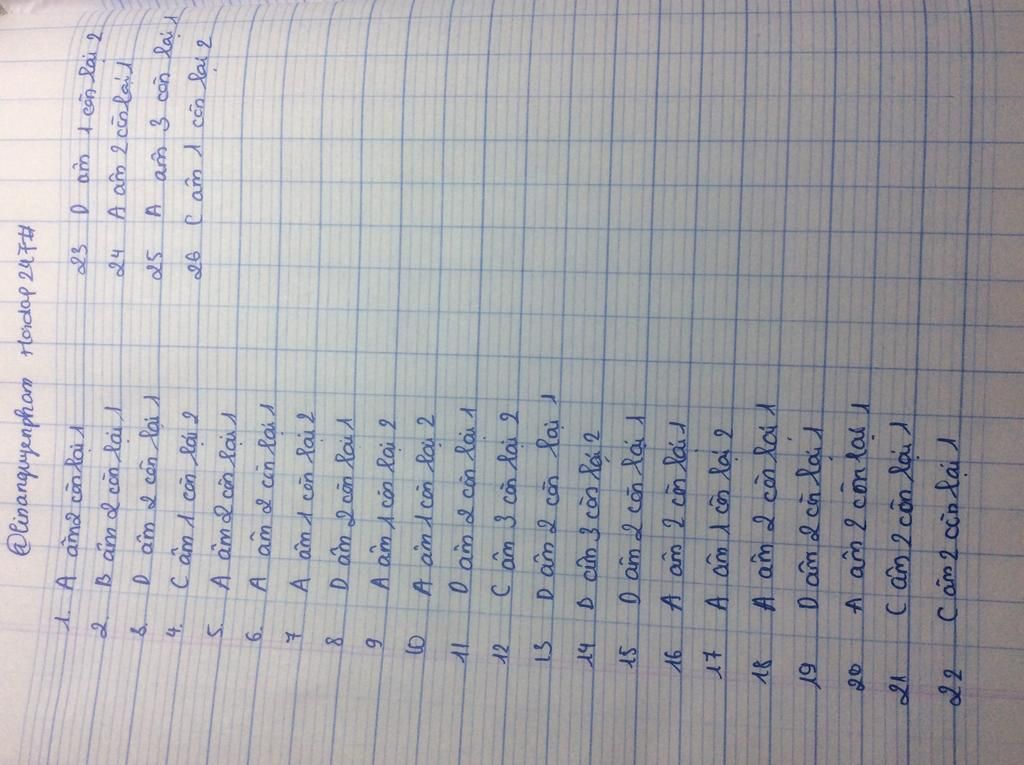 @linanguyenpham Hoidap247#
1. A âm 2 còn lại 1
2. B âm 2 còn lại 1
3. D âm 2 còn lại 1
4. C âm 1 còn lại 2
5. A âm 2 còn lại 1
6. A âm 2 còn lại 1
7 A âm 1 còn lại 2
8 D âm 2 còn lại 1
9 A âm 1 còn lại 2
10 A âm 1 còn lại 2
11 D âm 2 còn lại 1
12 C âm 3 còn lại 2
13 D âm 2 còn lại 1
14 D âm 3 còn lại 2
15 D âm 2 còn lại 1
16 A âm 2 còn lại 1
17 A âm 1 còn lại 2
18 A âm 2 còn lại 1
19 D âm 2 còn lại 1
20 A âm 2 còn lại 1
21 C âm 2 còn lại 1
22 C âm 2 còn lại 1
23 D âm 1 còn lại 2
24 A âm 2 còn lại 1
25 A âm 3 còn lại 1
26 C âm 1 còn lại 2